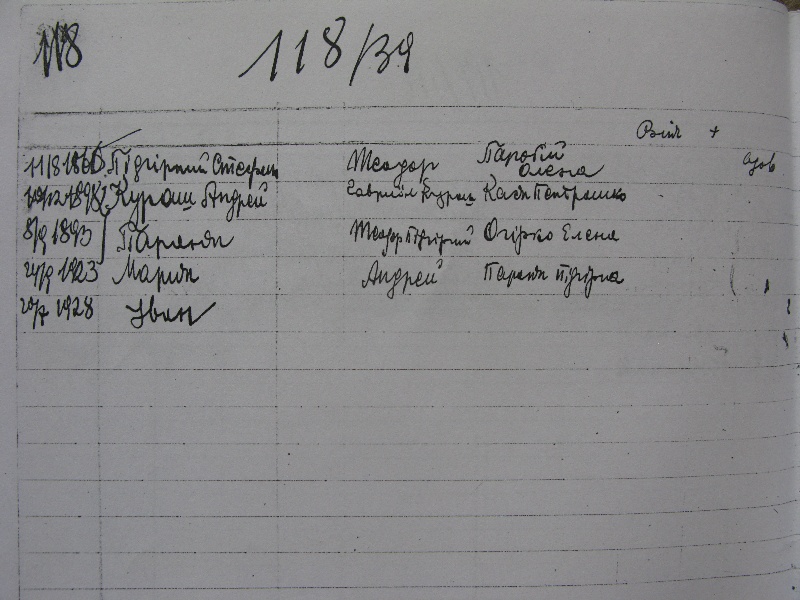 118 118/39
11/8 1860 Підгірний Стефан Теодор Паробій Олена
1898 Кураш Андрей Гавриїл Кураш Катя Петрашко
8/9 1893 Параня Теодор Підгірний Огірко Елена
1923 Мария Андрей Параня Підгірна
1928 Іван